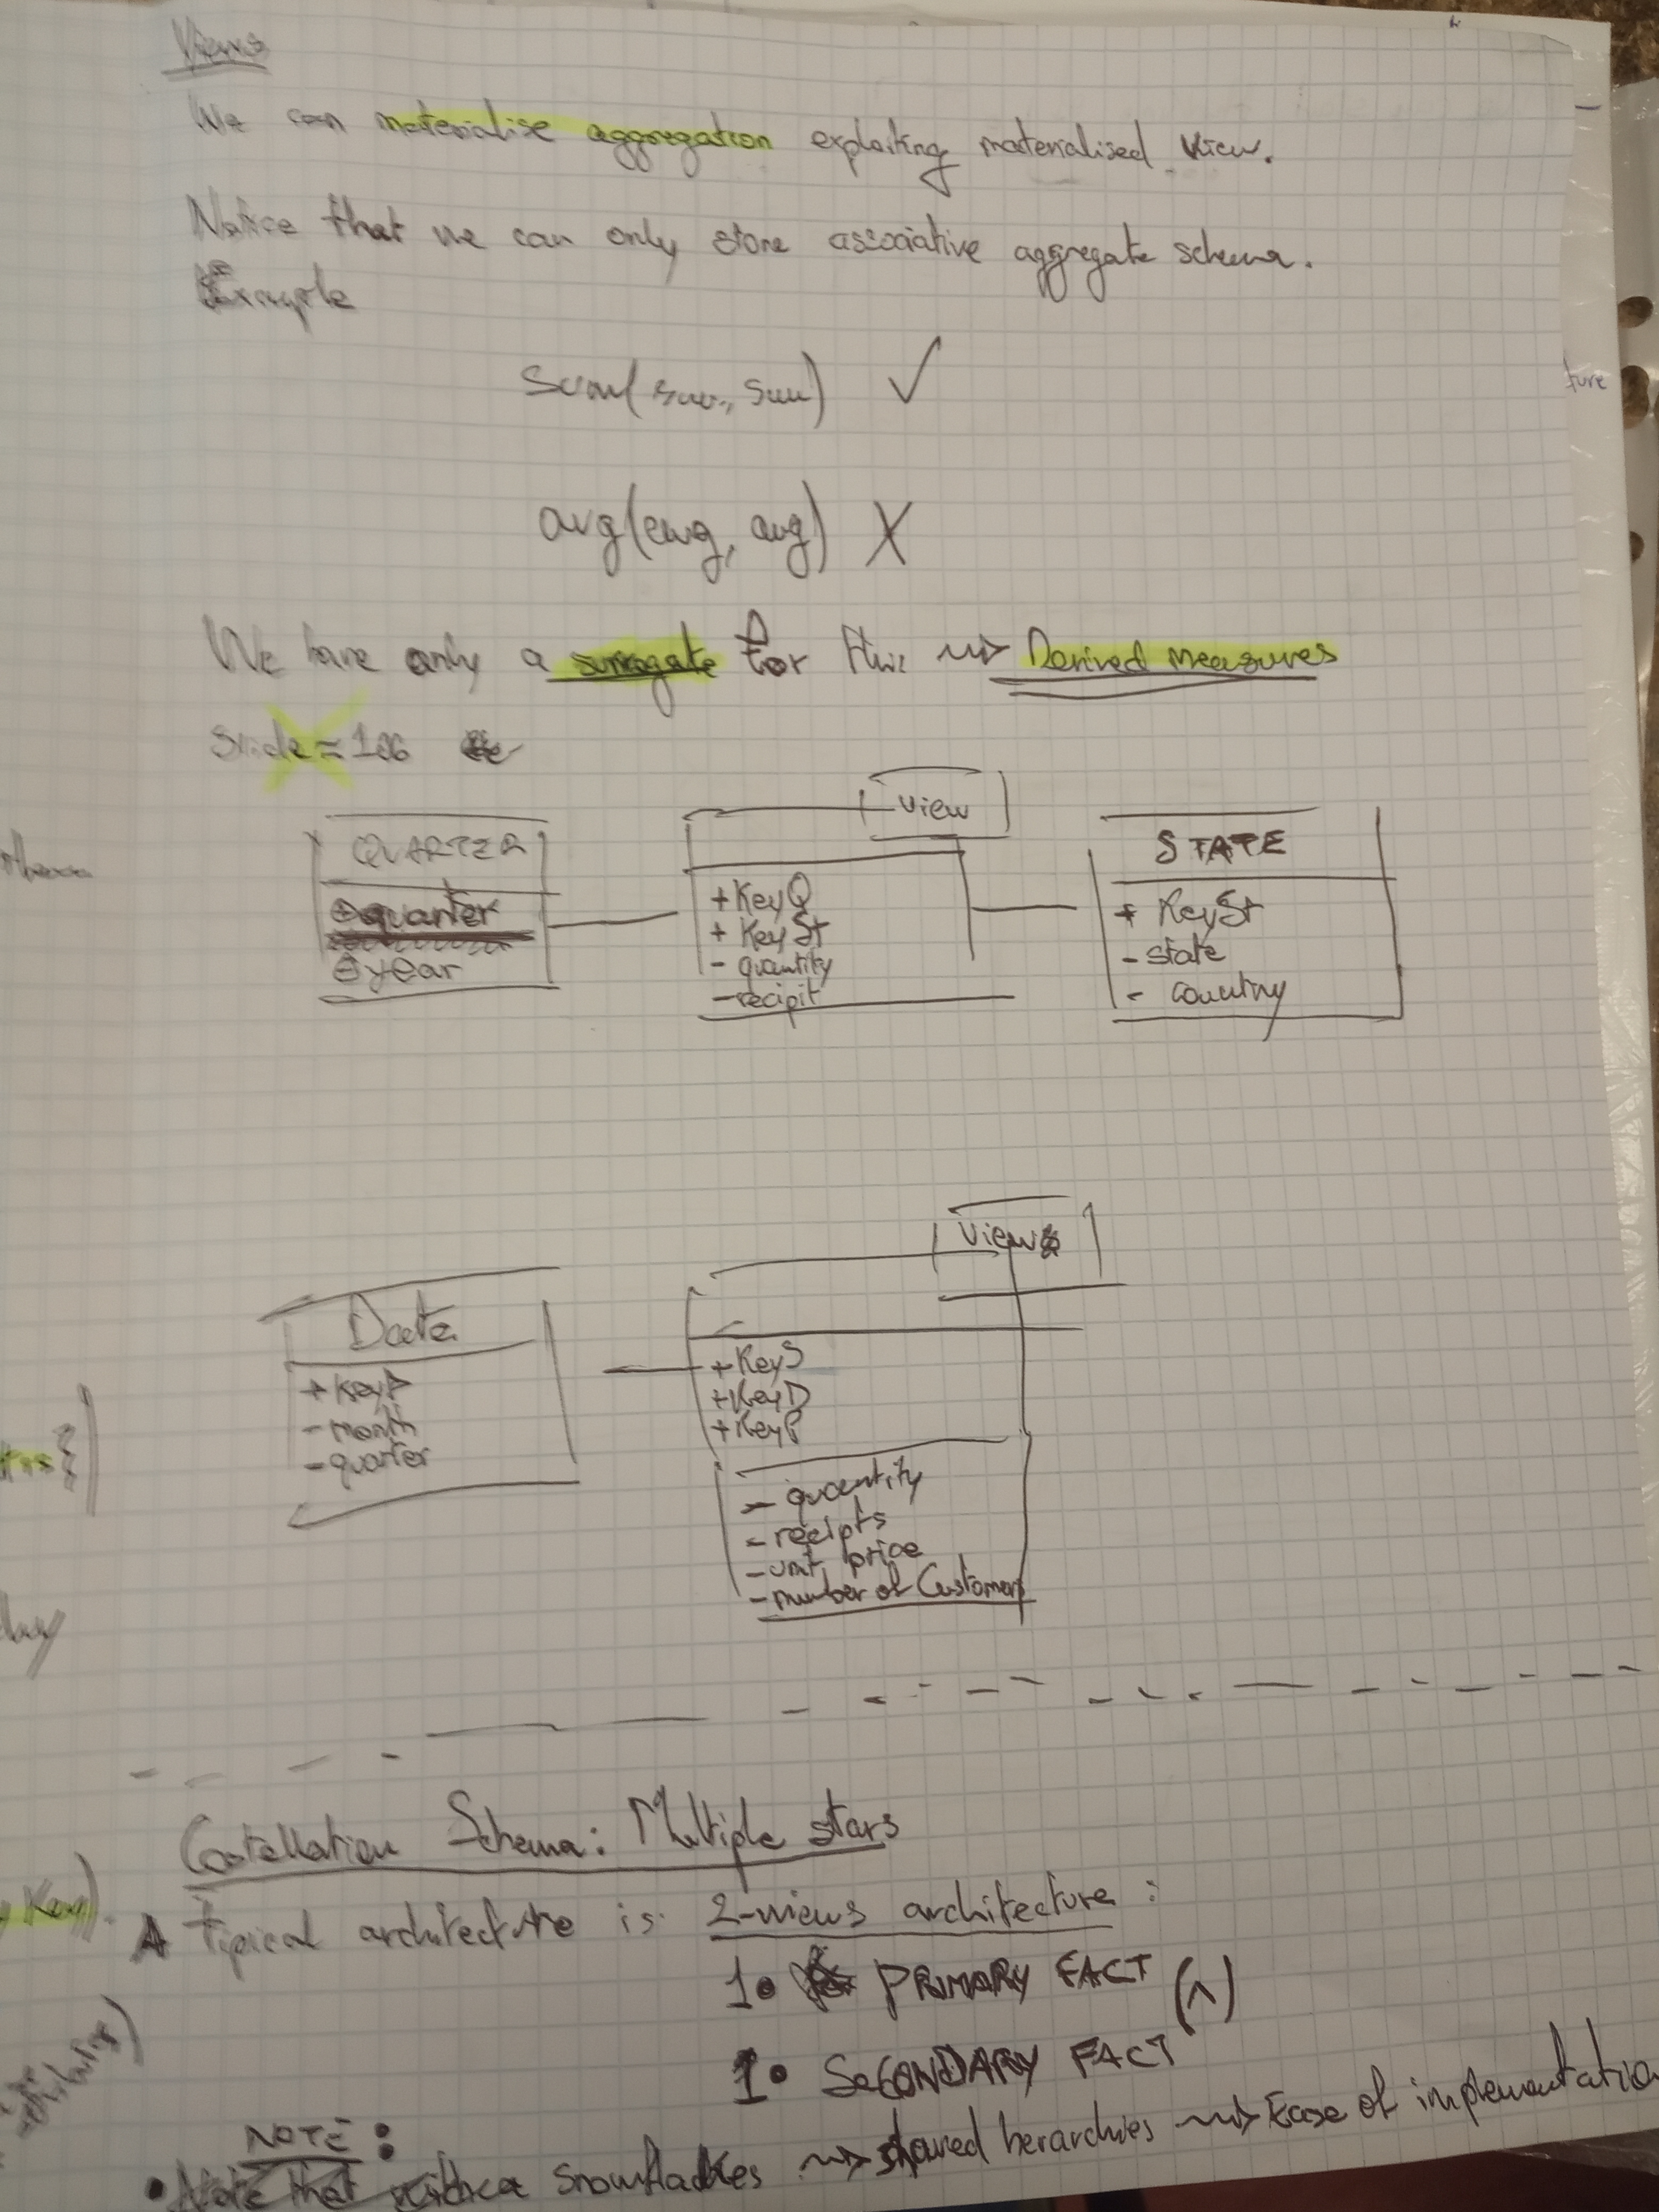 Views
We can materialise aggregation exploiting materialised view.
Notice that we can only store associative aggregate schema.
Example
sum(sum, sum) ✓
avg(avg, avg) X
We have only a surrogate for this ~> Derived measures
Slide ≈ 106
QUARTER
quarter
year
View
+ KeyQ
+ KeySt
- quantity
- recipit
STATE
+ KeySt
- state
- country
Date
- month
- quarter
View
+ KeyS
+ KeyD
+ KeyP
- quantity
- recipts
- unit price
- number of Customers
Costellation Schema: Multiple stars
A tipical architecture is 2-views architecture:
1• PRIMARY FACT
1• SECONDARY FACT
NOTE:
• Note that snowflakes ~> shared herarchies ~> Ease of implementation
ture
Key)